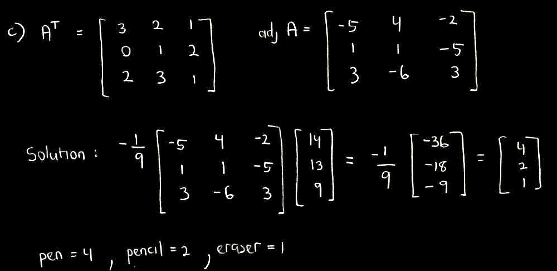 c) Aᵀ = [3 2 1; 0 1 2; 2 3 1] adj A = [-5 4 -2; 1 1 -5; 3 -6 3]
Solution : -1/9 [-5 4 -2; 1 1 -5; 3 -6 3] [14; 13; 9] = -1/9 [-36; -18; -9] = [4; 2; 1]
pen = 4 , pencil = 2 , eraser = 1